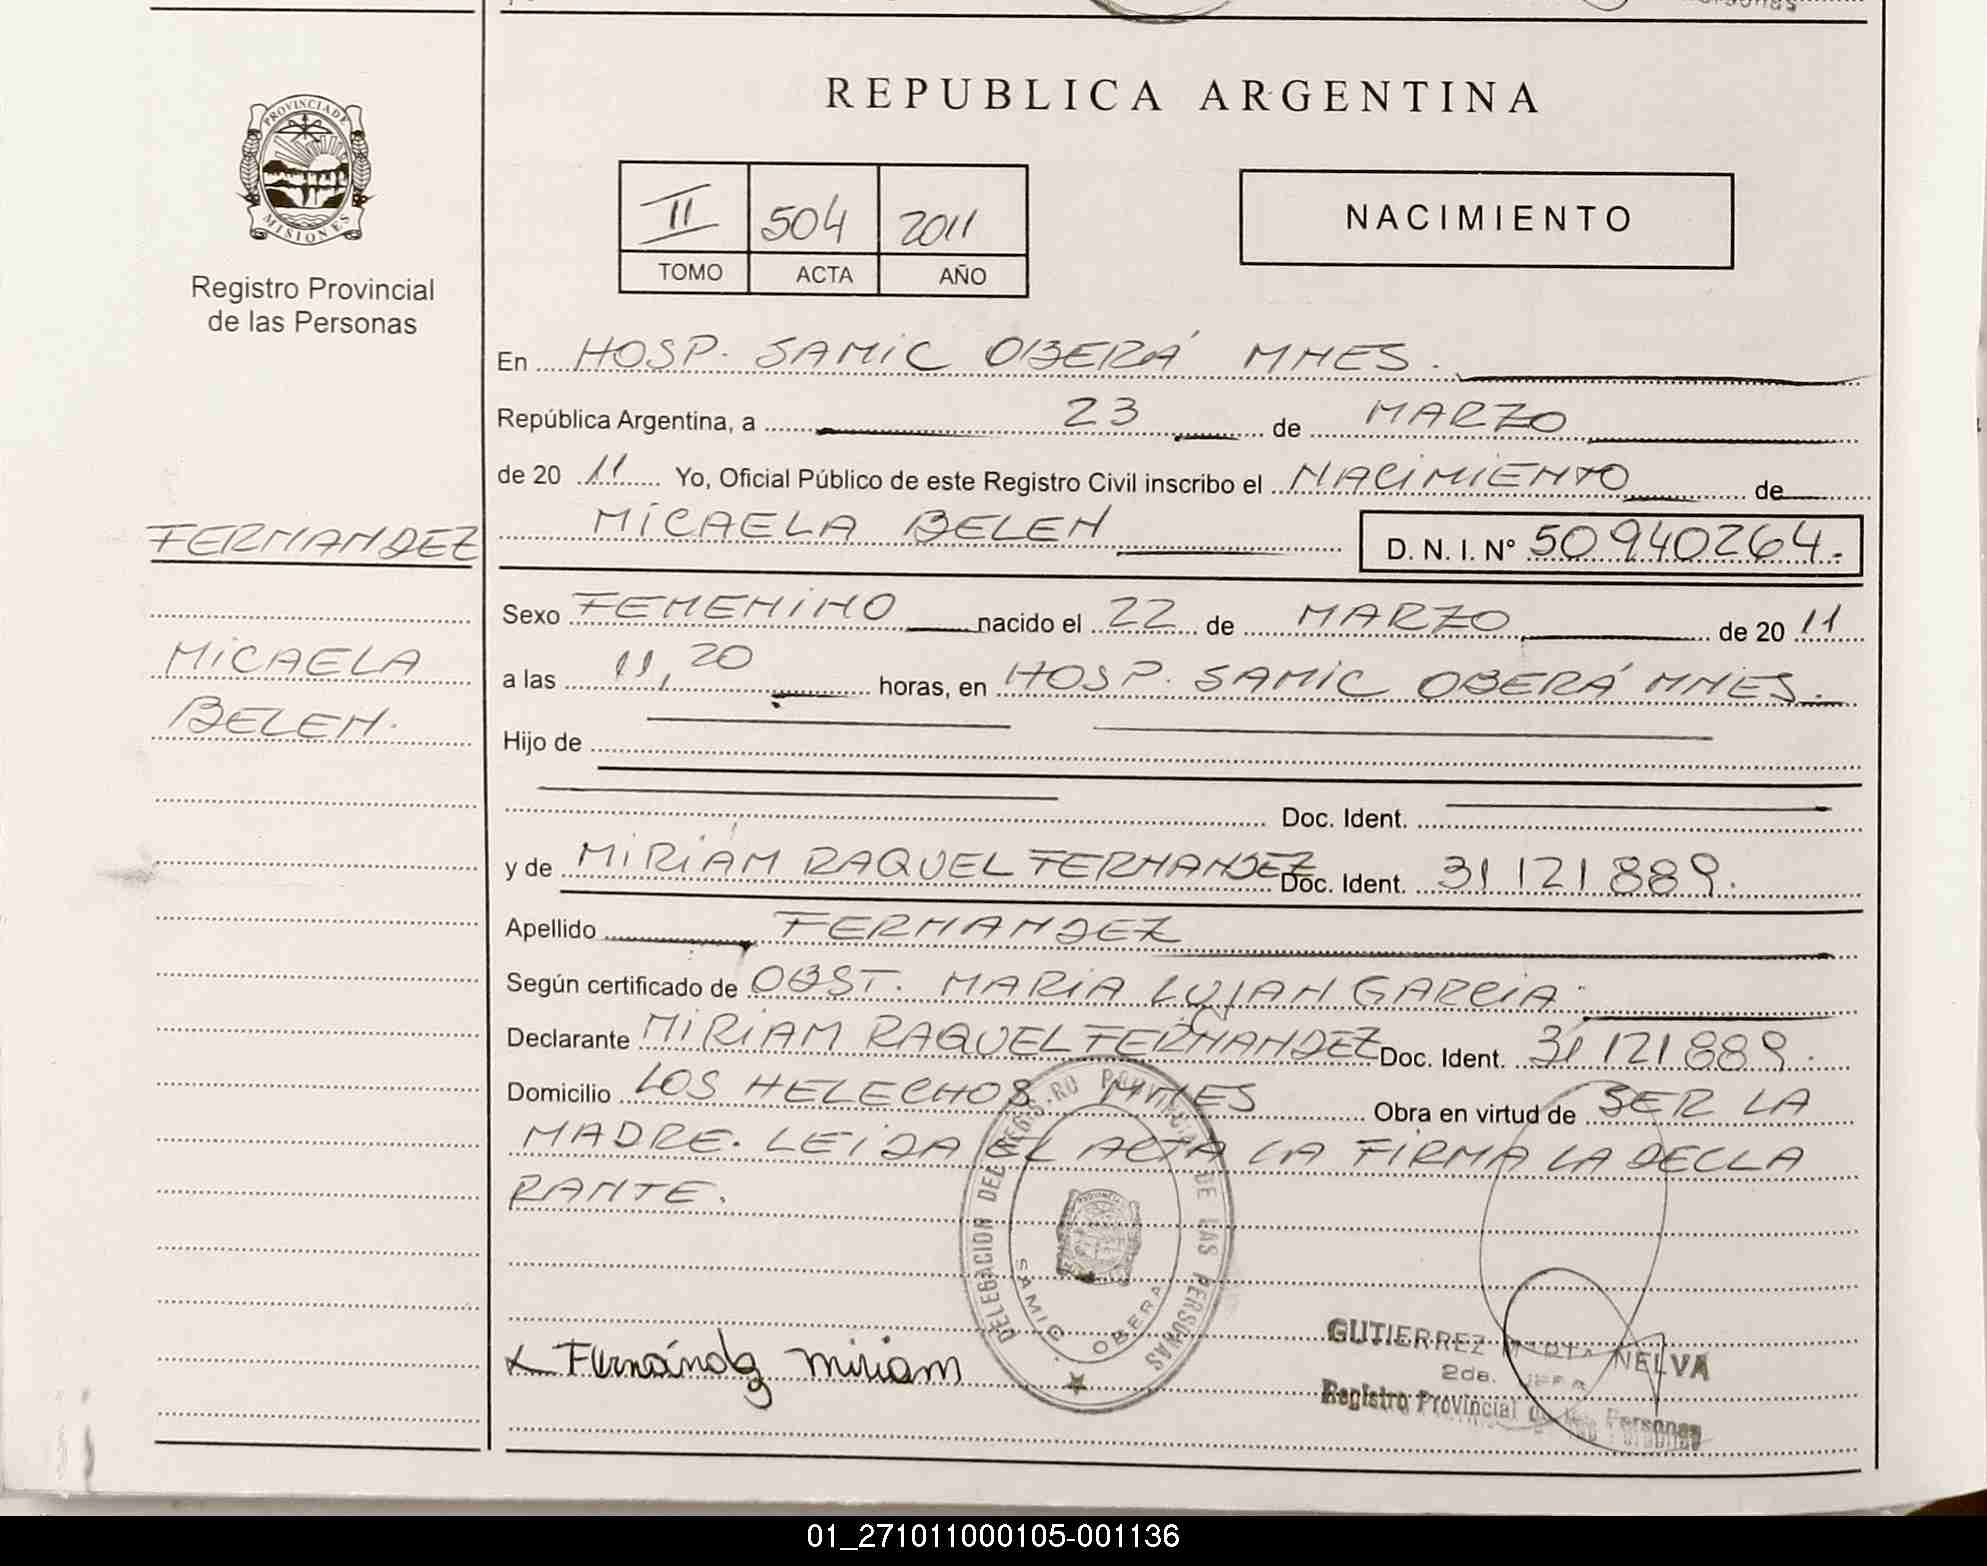 REPUBLICA ARGENTINA
PROVINCIA DE MISIONES
Registro Provincial
de las Personas
II 504 2011
TOMO ACTA AÑO
NACIMIENTO
En HOSP. SAMIC OBERÁ MNES.
República Argentina, a 23 de MARZO
de 20 11 Yo, Oficial Público de este Registro Civil inscribo el NACIMIENTO de
MICAELA BELEN D. N. I. Nº 50940264.
FERNANDEZ
MICAELA
BELEN.
Sexo FEMENINO nacido el 22 de MARZO de 20 11
a las 11,20 horas, en HOSP. SAMIC OBERÁ MNES.
Hijo de
Doc. Ident.
y de MIRIAM RAQUEL FERNANDEZ Doc. Ident. 31 121 889.
Apellido FERNANDEZ
Según certificado de OBST. MARIA LUJAN GARCIA
Declarante MIRIAM RAQUEL FERNANDEZ Doc. Ident. 31 121 889.
Domicilio LOS HELECHOS MNES Obra en virtud de SER LA
MADRE. LEIDA EL ACTA LA FIRMA LA DECLA
RANTE.
DELEGACION DEL REGISTRO PROVINCIAL DE LAS PERSONAS
SAMIC OBERA
x Fernández Miriam
GUTIERREZ NELVA
2da. JEFA
Registro Provincial de las Personas
01_271011000105-001136